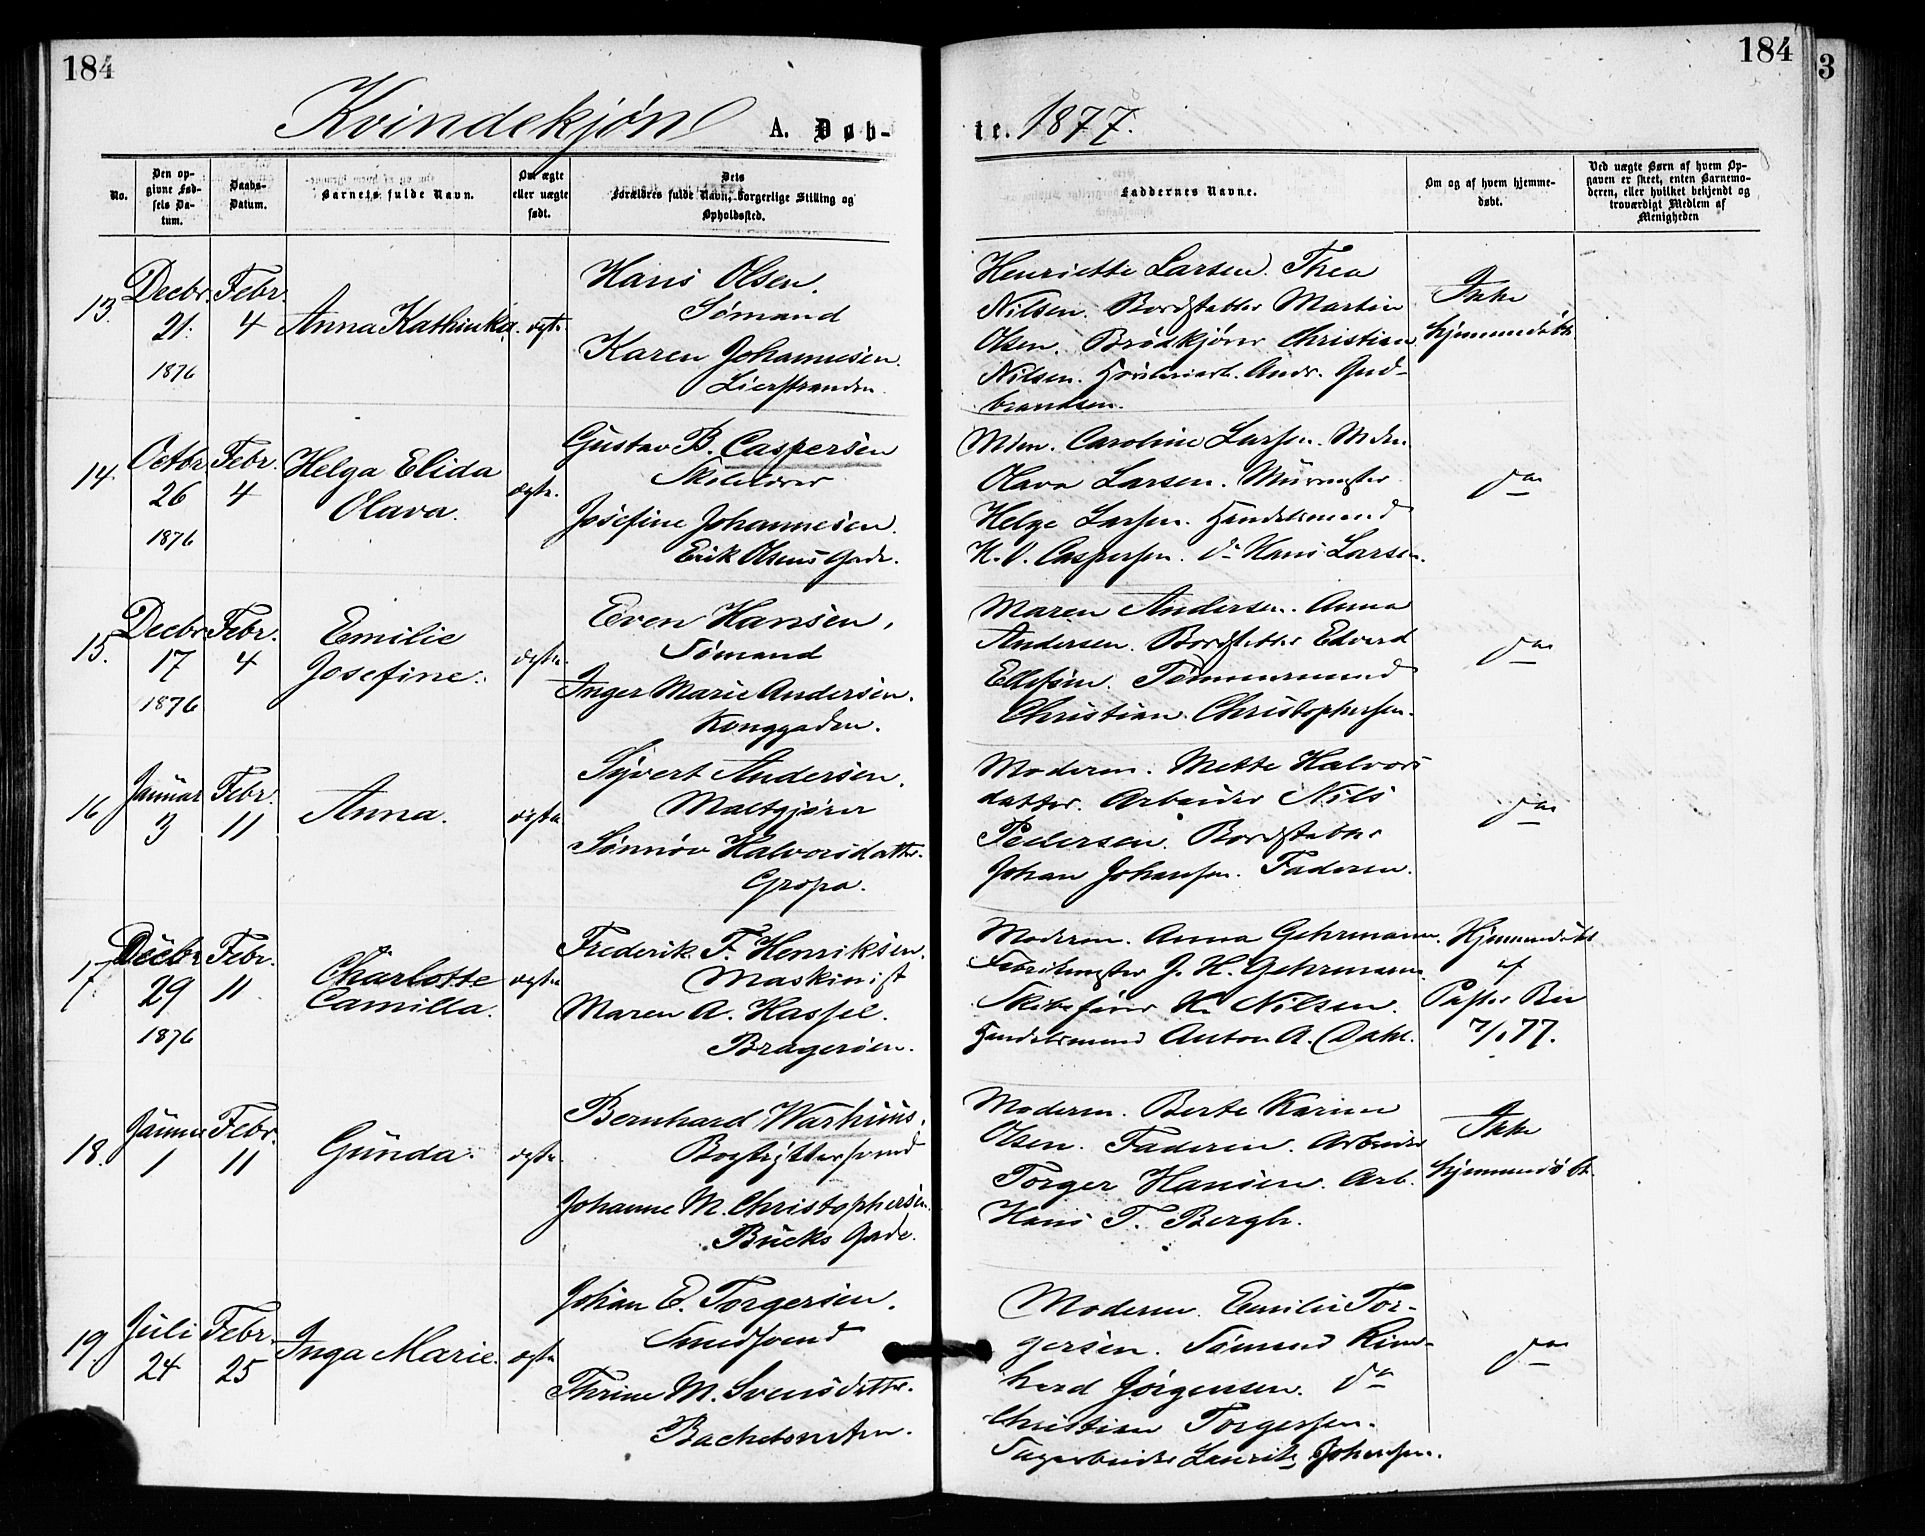 184
184
3
Kvindekjøn A. Døb-
te. 1877.
No.
Den op-
givne Fød-
sels Da-
tum.
Daabs-
Datum.
Barnets fulde Navn.
Om ægte
eller uægte
født.
Dets
Forældres fulde Navn, borgerlige Stilling og
Opholdssted.
Faddernes Navne.
Om og af hvem hjemme-
døbt.
Ved uægte Børn af hvem Op-
gaven er skeet, enten Barnemo-
deren, eller hvilket bekjendt og
troværdigt Medlem af
Menigheden
13.
Decbr.
21.
1876
Febr.
4
Anna Kathinka.
ægte.
Hans Olsen.
Sømand
Karen Johannesen.
Lierstranden.
Henriette Larsen. Thea
Nilsen. Bordstabler Martin
Olsen. Brødkjører Christian
Nilsen. Andr. Gud-
brandsen.
Ikke
hjemmedøbt
14.
Octbr.
26
1876
Febr.
4
Helga Elida
Olava.
ægte.
Gustav B. Caspersen
Josefine Johannesen.
Erik Olsens Gade.
Mdm. Caroline Larsen. Mdm.
Olava Larsen. Muurmester
Helge Larsen. Handelsmand
H. O. Caspersen. do Hans Larsen.
do
15.
Decbr.
17
1876
Febr.
4
Emilie
Josefine.
ægte.
Even Hansen,
Sømand
Inger Marie Andersen.
Konggaden.
Maren Andersen. Anna
Andersen. Bordstabler Edvard
Ellefsen. Tømmermand
Christian Christophersen.
do
16
Januar
3
Febr.
11
Anna.
ægte
Syvert Andersen.
Maltgjører
Sønnøv Halvorsdatter.
Gropa.
Moderen. Mette Halvors
datter. Arbeider Nils
Pedersen. Bordstabler
Johan Johansen. Faderen.
do
17.
Decbr
29
1876
Febr.
11
Charlotte
Camilla.
ægte
Frederik F. Henriksen.
Maskinist
Maren A. Hassel.
Bragerøen.
Moderen. Anna Gehrmann.
Fabrikmester J. H. Gehrmann.
Skibsfører K. Nilsen.
Handelsmand Anton A. Dahl.
Hjemmedøbt
af
Pastor Bu
7/1 77.
18.
Januar
1
Febr.
11
Gunda.
ægte.
Bernhard Warhuus.
Bogtrykkersvend
Johanne M. Christophersen.
Bucks Gade.
Moderen. Berte Karine
Olsen. Faderen. Arbeider
Torger Hansen. Arb.
Hans T. Bergh.
Ikke
hjemmedøbt.
19.
Juli
24
Febr.
25
Inga Marie.
ægte
Johan E. Torgersen.
Smedsvend
Thrine M. Svensdatter.
Moderen. Emilie Tor-
gersen. Sømand
Jørgensen. do
Christian Torgersen.
Sagarbeider Lauritz Johansen.
do